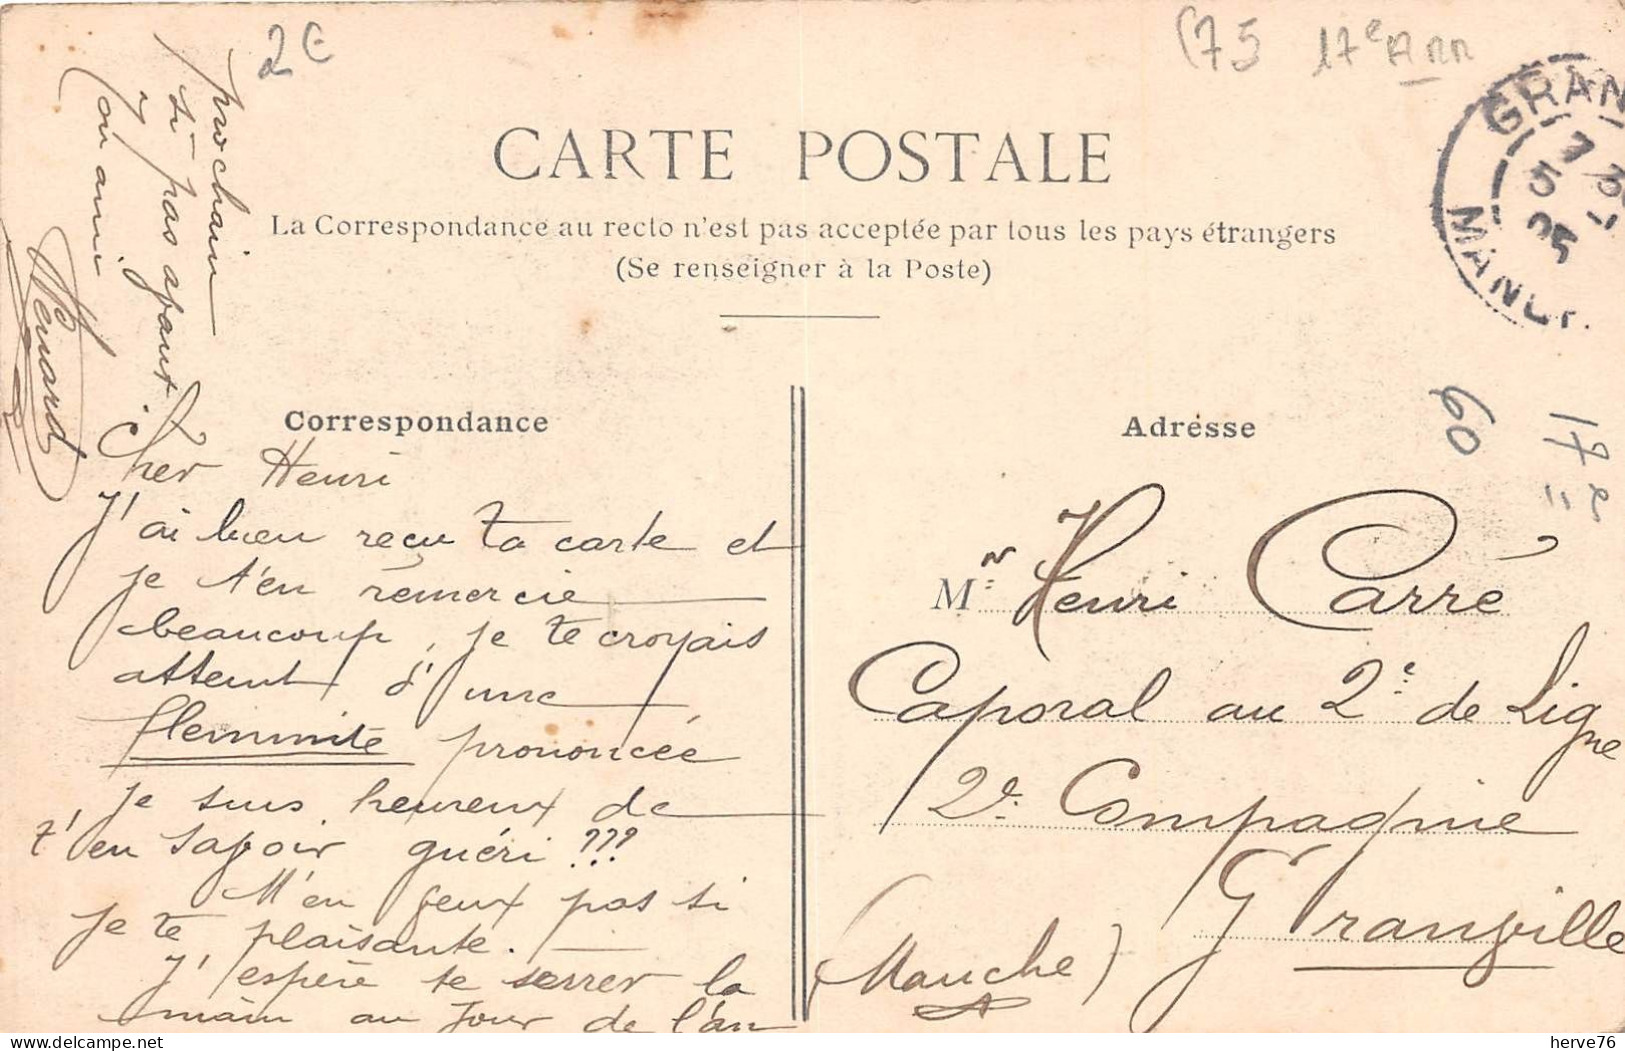 2€
(75 17e Arr
CARTE POSTALE
La Correspondance au recto n'est pas acceptée par tous les pays étrangers
(Se renseigner à la Poste)
GRAN
MANCH
7
5
05
60
17e
Correspondance
Cher Henri
J'ai bien reçu ta carte et
je t'en remercie
beaucoup, je te croyais
atteint d'une
flemmite prononcée
je suis heureux de
t'en savoir guéri ???
M'en veux pas si
je te plaisante.
J'espère te serrer la
main au jour de l'an
prochain
si pas avant
Ton ami
Renard
Adresse
Mr Henri Carré
Caporal au 2e de Ligne
2e Compagnie
Granville
(Manche)
herve76